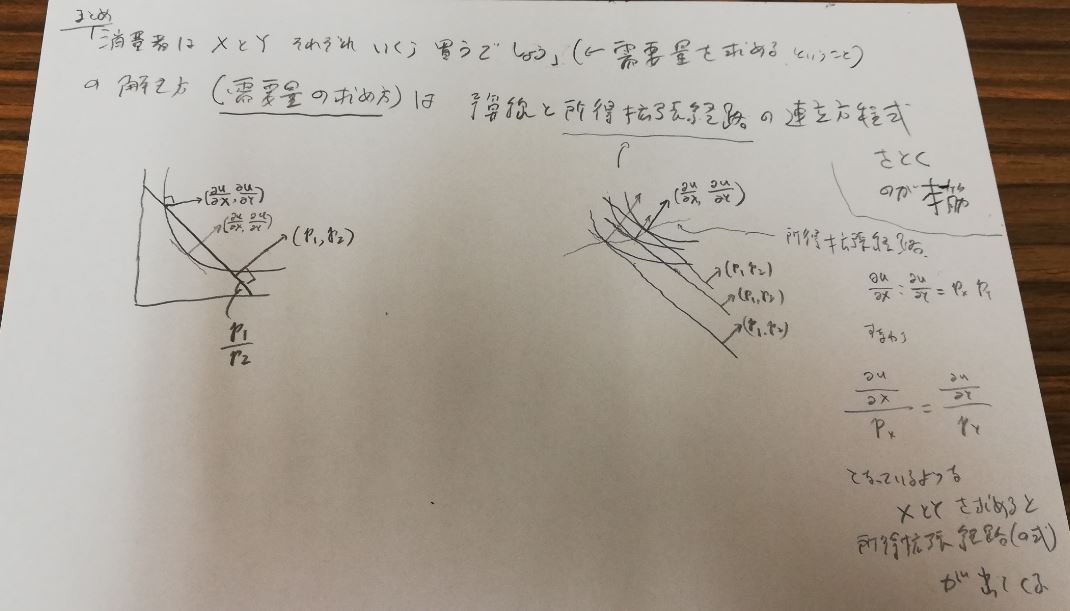 まとめ
「消費者は XとY それぞれ いくら 買うでしょう」(←需要量を求める ということ)
の 解き方 (需要量の求め方)は 予算線と所得拡張経路の連立方程式
をとく
のが 本筋
(∂u/∂X, ∂u/∂Y)
(∂u/∂X, ∂u/∂Y)
(p₁, p₂)
p₁/p₂
(∂u/∂X, ∂u/∂Y)
所得拡張経路
(p₁, p₂)
(p₁, p₂)
(p₁, p₂)
∂u/∂X : ∂u/∂Y = Px PY
すなわち
∂u/∂X / Px = ∂u/∂Y / PY
となっているような
XとYを求めると
所得拡張経路(の式)
が出てくる